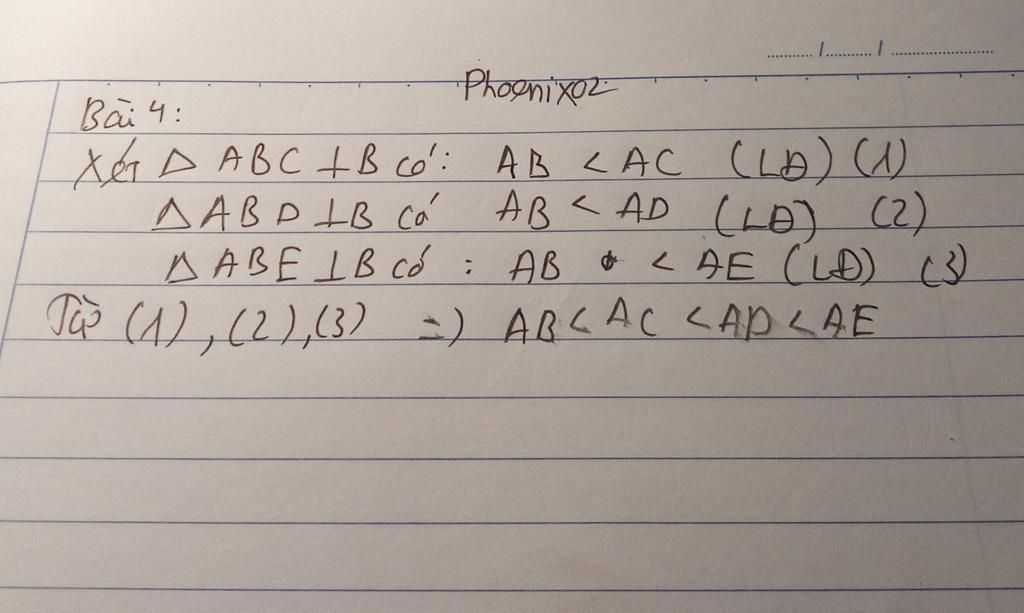 Phoenix02
Bài 4:
Xét Δ ABC ⊥B có: AB < AC (LĐ) (1)
Δ ABD ⊥B có AB < AD (LĐ) (2)
Δ ABE ⊥B có : AB < AE (LĐ) (3)
Từ (1), (2), (3) =) AB < AC < AD < AE